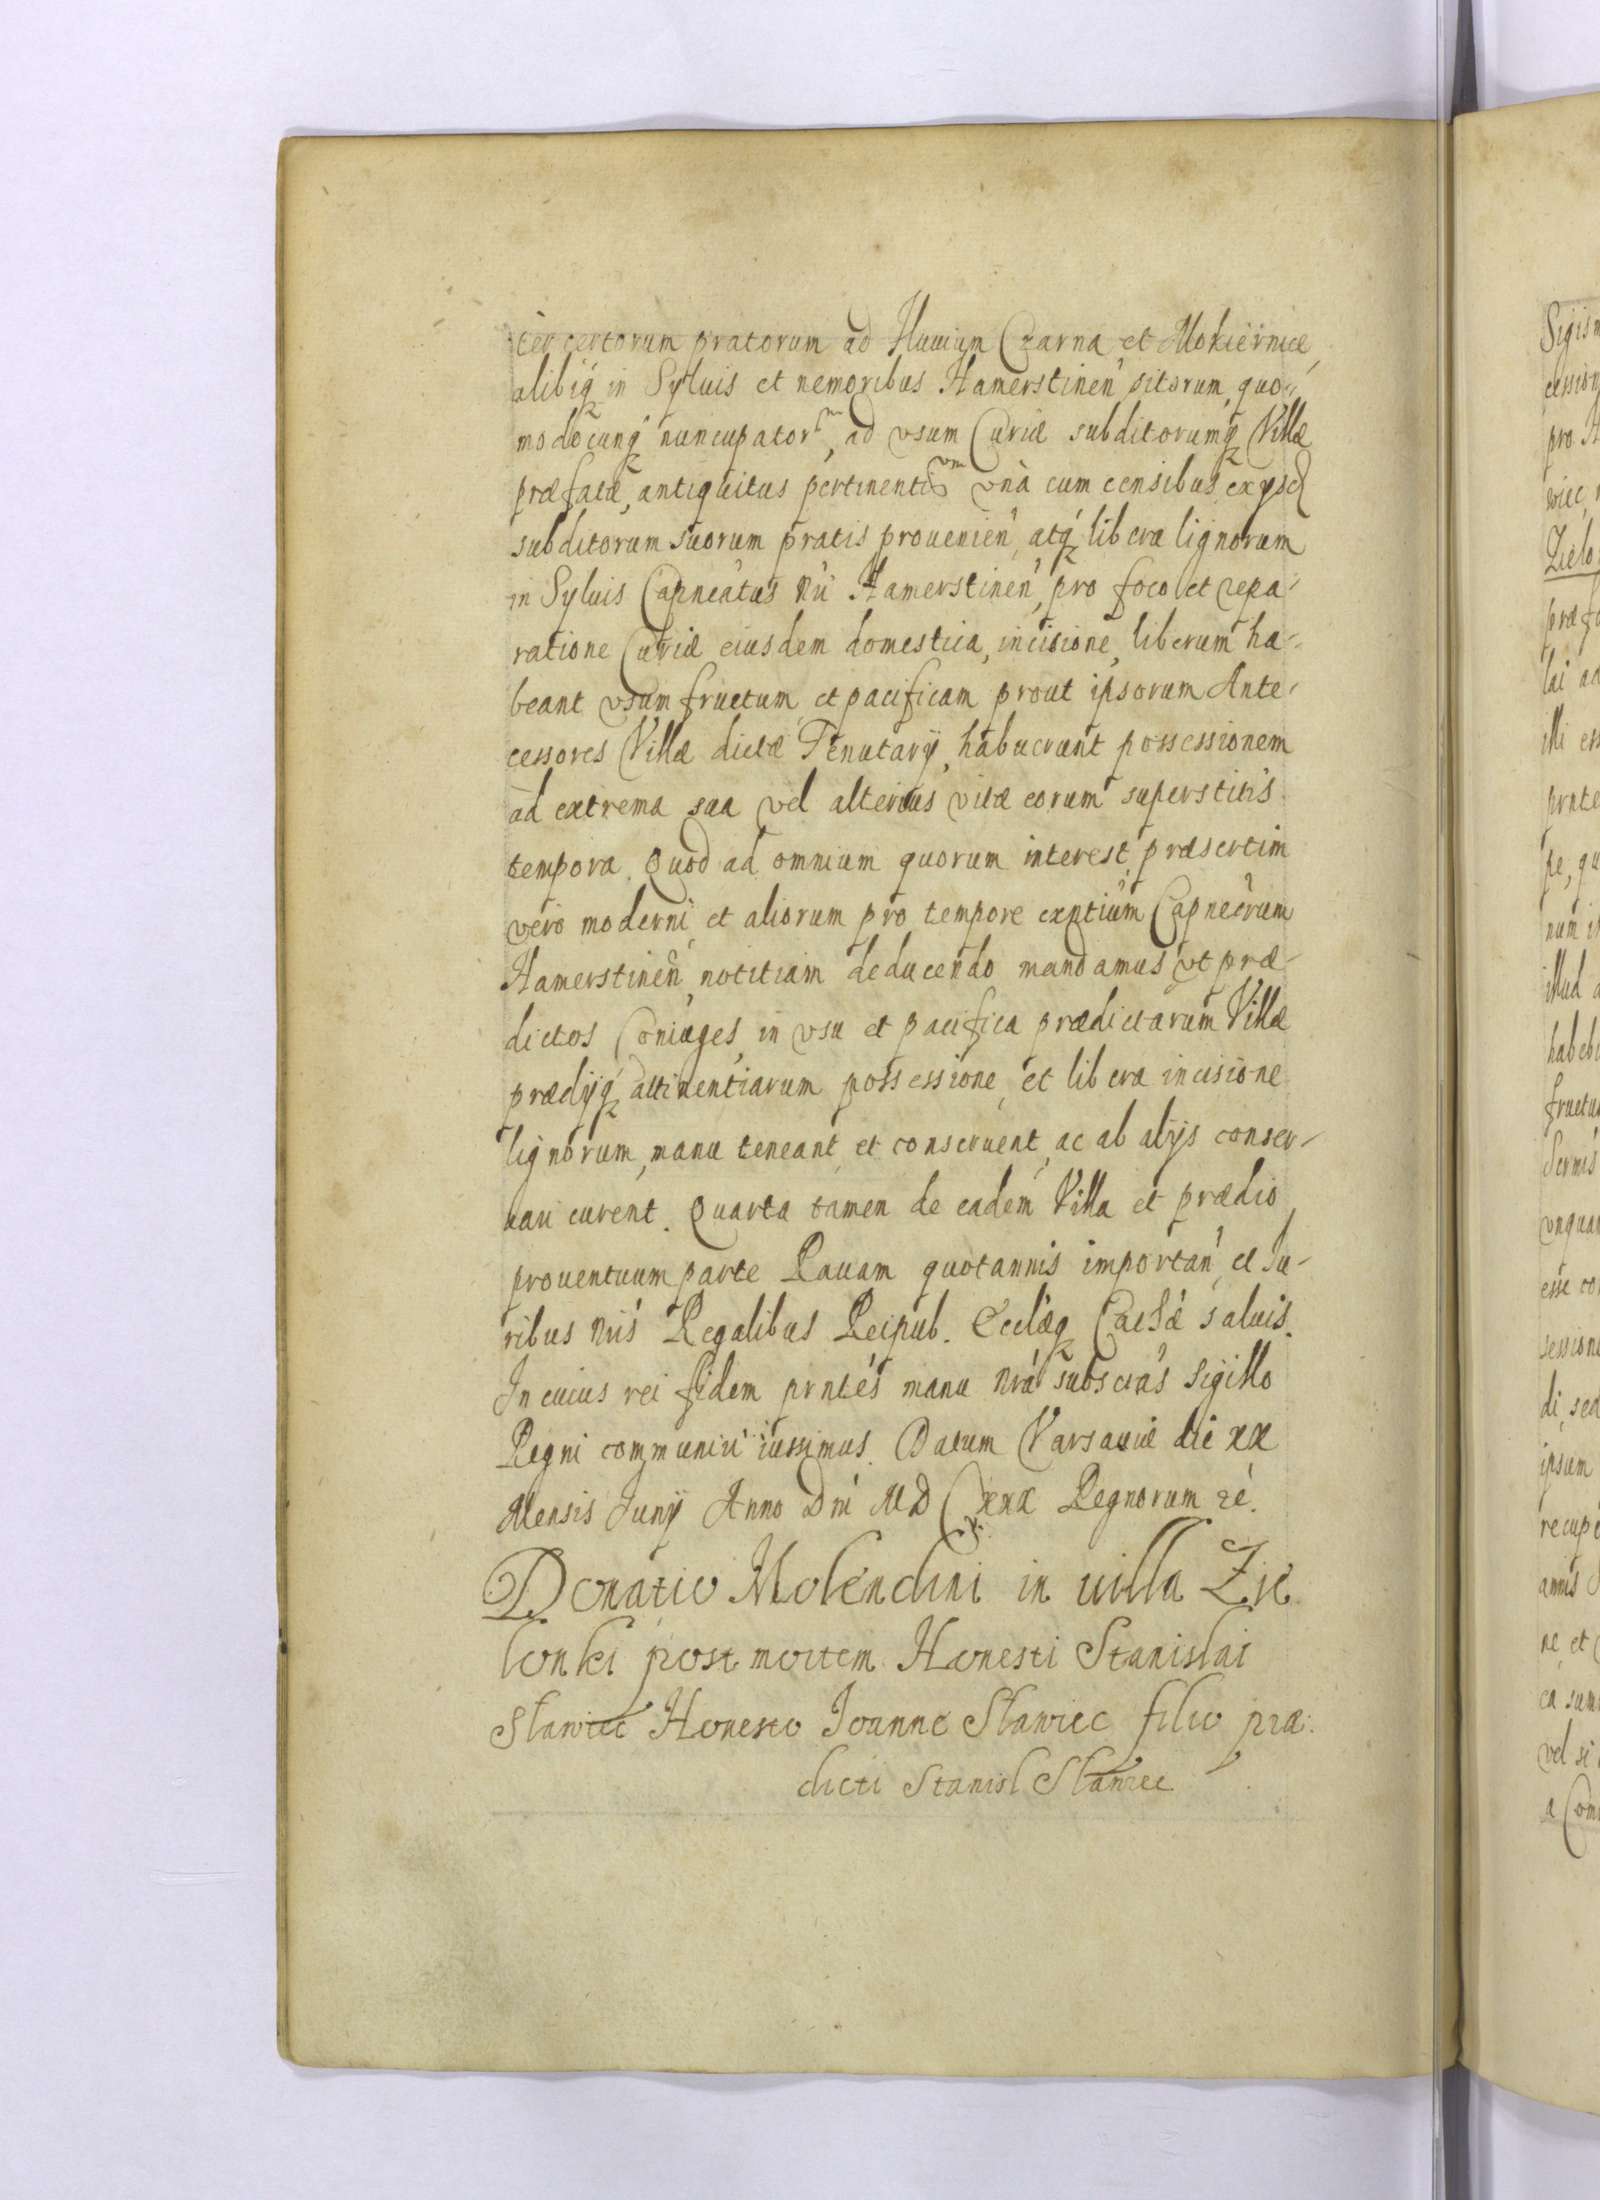 ter certorum pratorum ad Fluuium Czarna et Mokiernice
alibiq́ in Syluis et nemoribus Hamerstinen̄ sitorum, quo-
modocunq́ nuncupatorum, ad vsum Curiæ subditorumq́ Villæ
præfatæ, antiquitus pertinentium vnà cum censibus ex ysd
subditorum suorum pratis prouenien̄, atq́ libera lignorum
in Syluis Capneatus nri Hamerstinen̄, pro foco et repa-
ratione Curiæ eiusdem domestica, incisione, liberum ha-
beant vsumfructum et pacificam prout ipsorum Ante-
cessores Villæ dictæ Tenutarÿ, habuerunt possessionem
ad extrema sua vel alterius vitæ eorum superstitis
tempora. Quod ad omnium quorum interest, præsertim
vero moderni, et aliorum pro tempore exn̄tium Capneorum
Hamerstinen̄, notitiam deducendo mandamus, vt præ-
dictos Coniuges, in vsu et pacifica prædictarum Villæ
prædÿq́ attinentiarum possessione, et libera incisione
lignorum, manu teneant et conseruent, ac ab alÿs conser-
uari curent. Quarta tamen de eadem Villa et prædio
prouentuum parte Rauam quotannis importan̄, et Iu-
ribus nris Regalibus Reipub. Ecclæq́ Cath̄æ saluis.
In cuius rei fidem pn̄tes manu nrá subscras Sigillo
Regni communiri iussimus. Datum Varsauiæ die XX
Mensis Junÿ Anno Dni MDCXXX Regnorum rē.
Donatio Molendini in uilla Zie
lonki post mortem Honesti Stanislai
Slawiec Honesto Ioanne Slawiec filio præ:
dicti Stanisl Slawiec